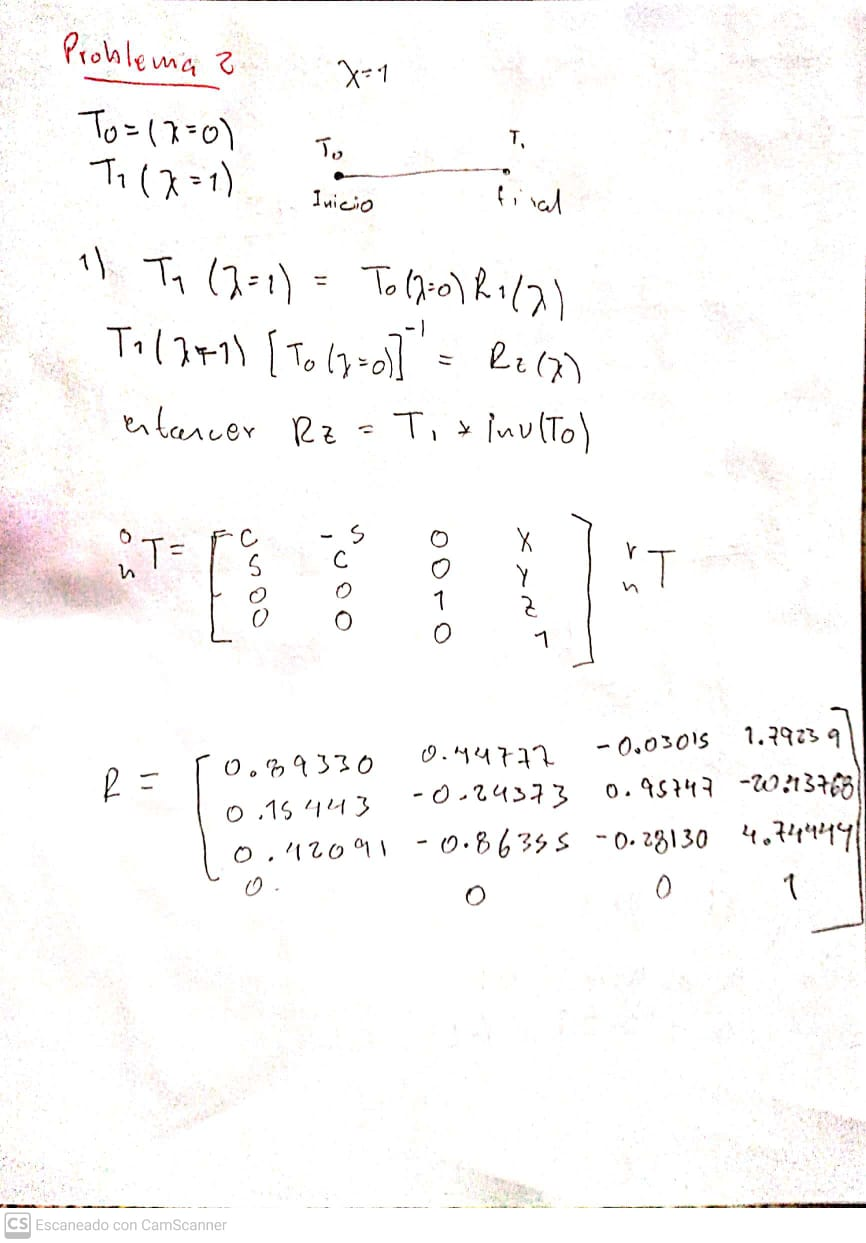 Problema 2
λ=1
To=(λ=0)
T1(λ=1)
To T1
Inicio final
1) T1 (λ=1) = To(λ=0) R1(λ)
T1(λ=1) [To(λ=0)]⁻¹ = Rz(λ)
entances Rz = T1 * inv(To)
0 n T = [ C -S 0 X ] r n T
S C 0 Y
0 0 1 Z
0 0 0 1
R = [ 0.89330 0.44772 -0.03015 1.79239 ]
0.15443 -0.24373 0.95747 -20.13768
0.42091 -0.86355 -0.28130 4.74444
0. 0 0 1
CS Escaneado con CamScanner